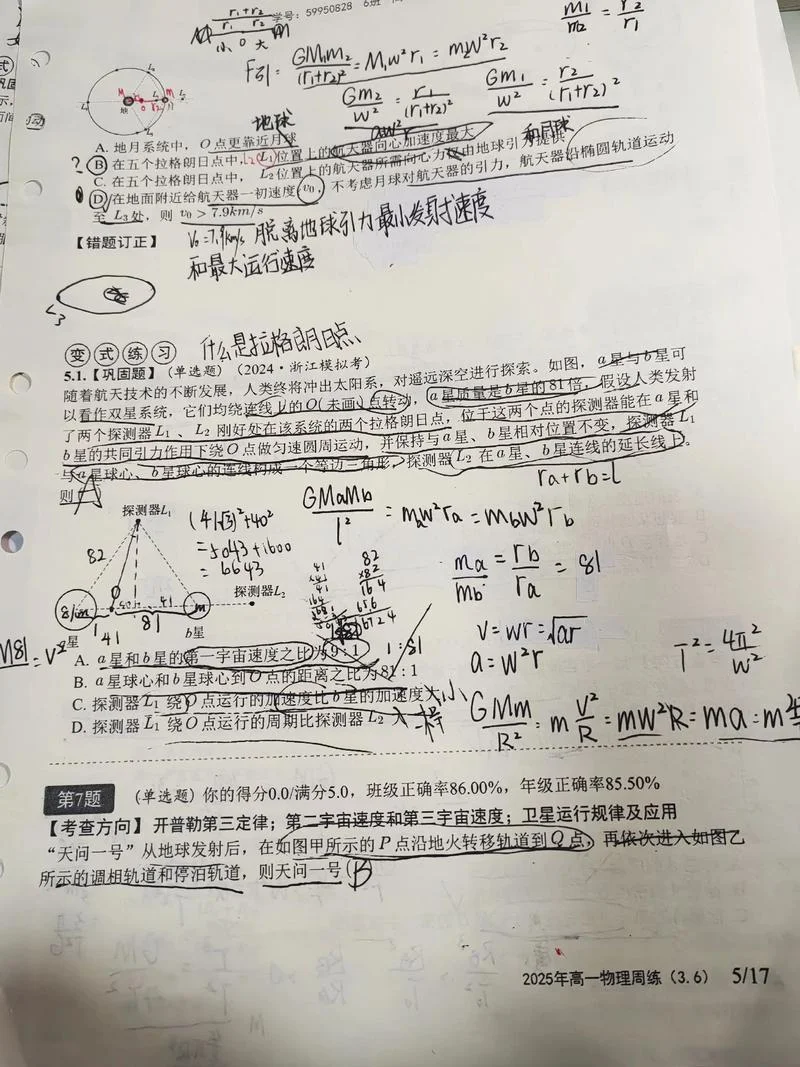 r₁+r₂
r₁ r₂
小 O 大
学号：59950828 6班
m₁/m₂ = r₂/r₁
F引 = GM₁m₂/(r₁+r₂)² = M₁w²r₁ = m₂w²r₂
Gm₂/w² = r₁/(r₁+r₂)²
Gm₁/w² = r₂/(r₁+r₂)²
地球
aw²r
和月球
A. 地月系统中，O点更靠近月球
? B 在五个拉格朗日点中，L₁位置上的航天器向心加速度最大
C. 在五个拉格朗日点中，L₂位置上的航天器所需向心力仅由地球引力提供
D 在地面附近给航天器一初速度 v₀，不考虑月球对航天器的引力，航天器沿椭圆轨道运动
至 L₃处，则 v₀ > 7.9km/s
【错题订正】
V₀=7.9km/s 脱离地球引力最小发射速度
和最大运行速度
L₃
变式练习
什么是拉格朗日点
5.1.【巩固题】(单选题) (2024·浙江模拟考)
随着航天技术的不断发展，人类终将冲出太阳系，对遥远深空进行探索。如图，a星与b星可
以看作双星系统，它们均绕连线上的O(未画)点转动，a星质量是b星的81倍，假设人类发射
了两个探测器L₁、L₂刚好处在该系统的两个拉格朗日点，位于这两个点的探测器能在a星和
b星的共同引力作用下绕O点做匀速圆周运动，并保持与a星、b星相对位置不变，探测器L₁
与a星球心、b星球心的连线构成一个等边三角形，探测器L₂在a星、b星连线的延长线上。
则 A
ra+rb=l
探测器L₁
(41√3)²+40²
=5043+1600
=6643
GMaMb/l² = maw²ra = mbw²rb
82
41
×41
164
82
×82
164
656
6724
ma/mb = rb/ra = 81
81m
O
40
41
m
探测器L₂
星
1
41
81
b星
V=wr=√ar
a=w²r
T²=4π²/w²
A. a星和b星的第一宇宙速度之比为9:1
1:81
B. a星球心和b星球心到O点的距离之比为81:1
C. 探测器L₁绕O点运行的加速度比b星的加速度大 小
D. 探测器L₁绕O点运行的周期比探测器L₂ 一样
GMm/R² = mv²/R = mw²R = ma
第7题
(单选题) 你的得分0.0/满分5.0，班级正确率86.00%，年级正确率85.50%
【考查方向】开普勒第三定律；第二宇宙速度和第三宇宙速度；卫星运行规律及应用
“天问一号”从地球发射后，在如图甲所示的P点沿地火转移轨道到Q点，再依次进入如图乙
所示的调相轨道和停泊轨道，则天问一号( B
2025年高一物理周练（3.6） 5/17